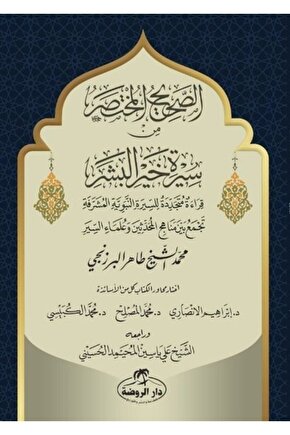 الصحيح المختصر
من
سيرة خير البشر ﷺ
قراءة متجددة للسيرة النبوية المشرفة
تجمع بين مناهج المحدثين وعلماء السير
محمد الشيخ طاهر البرزنجي
اختار محاور الكتاب كل من الأساتذة
د. إبراهيم الأنصاري د. محمد المصلح د. محمد الكبيسي
وراجعه
الشيخ علي ياسين المحيمد الحسيني
دار الروضة